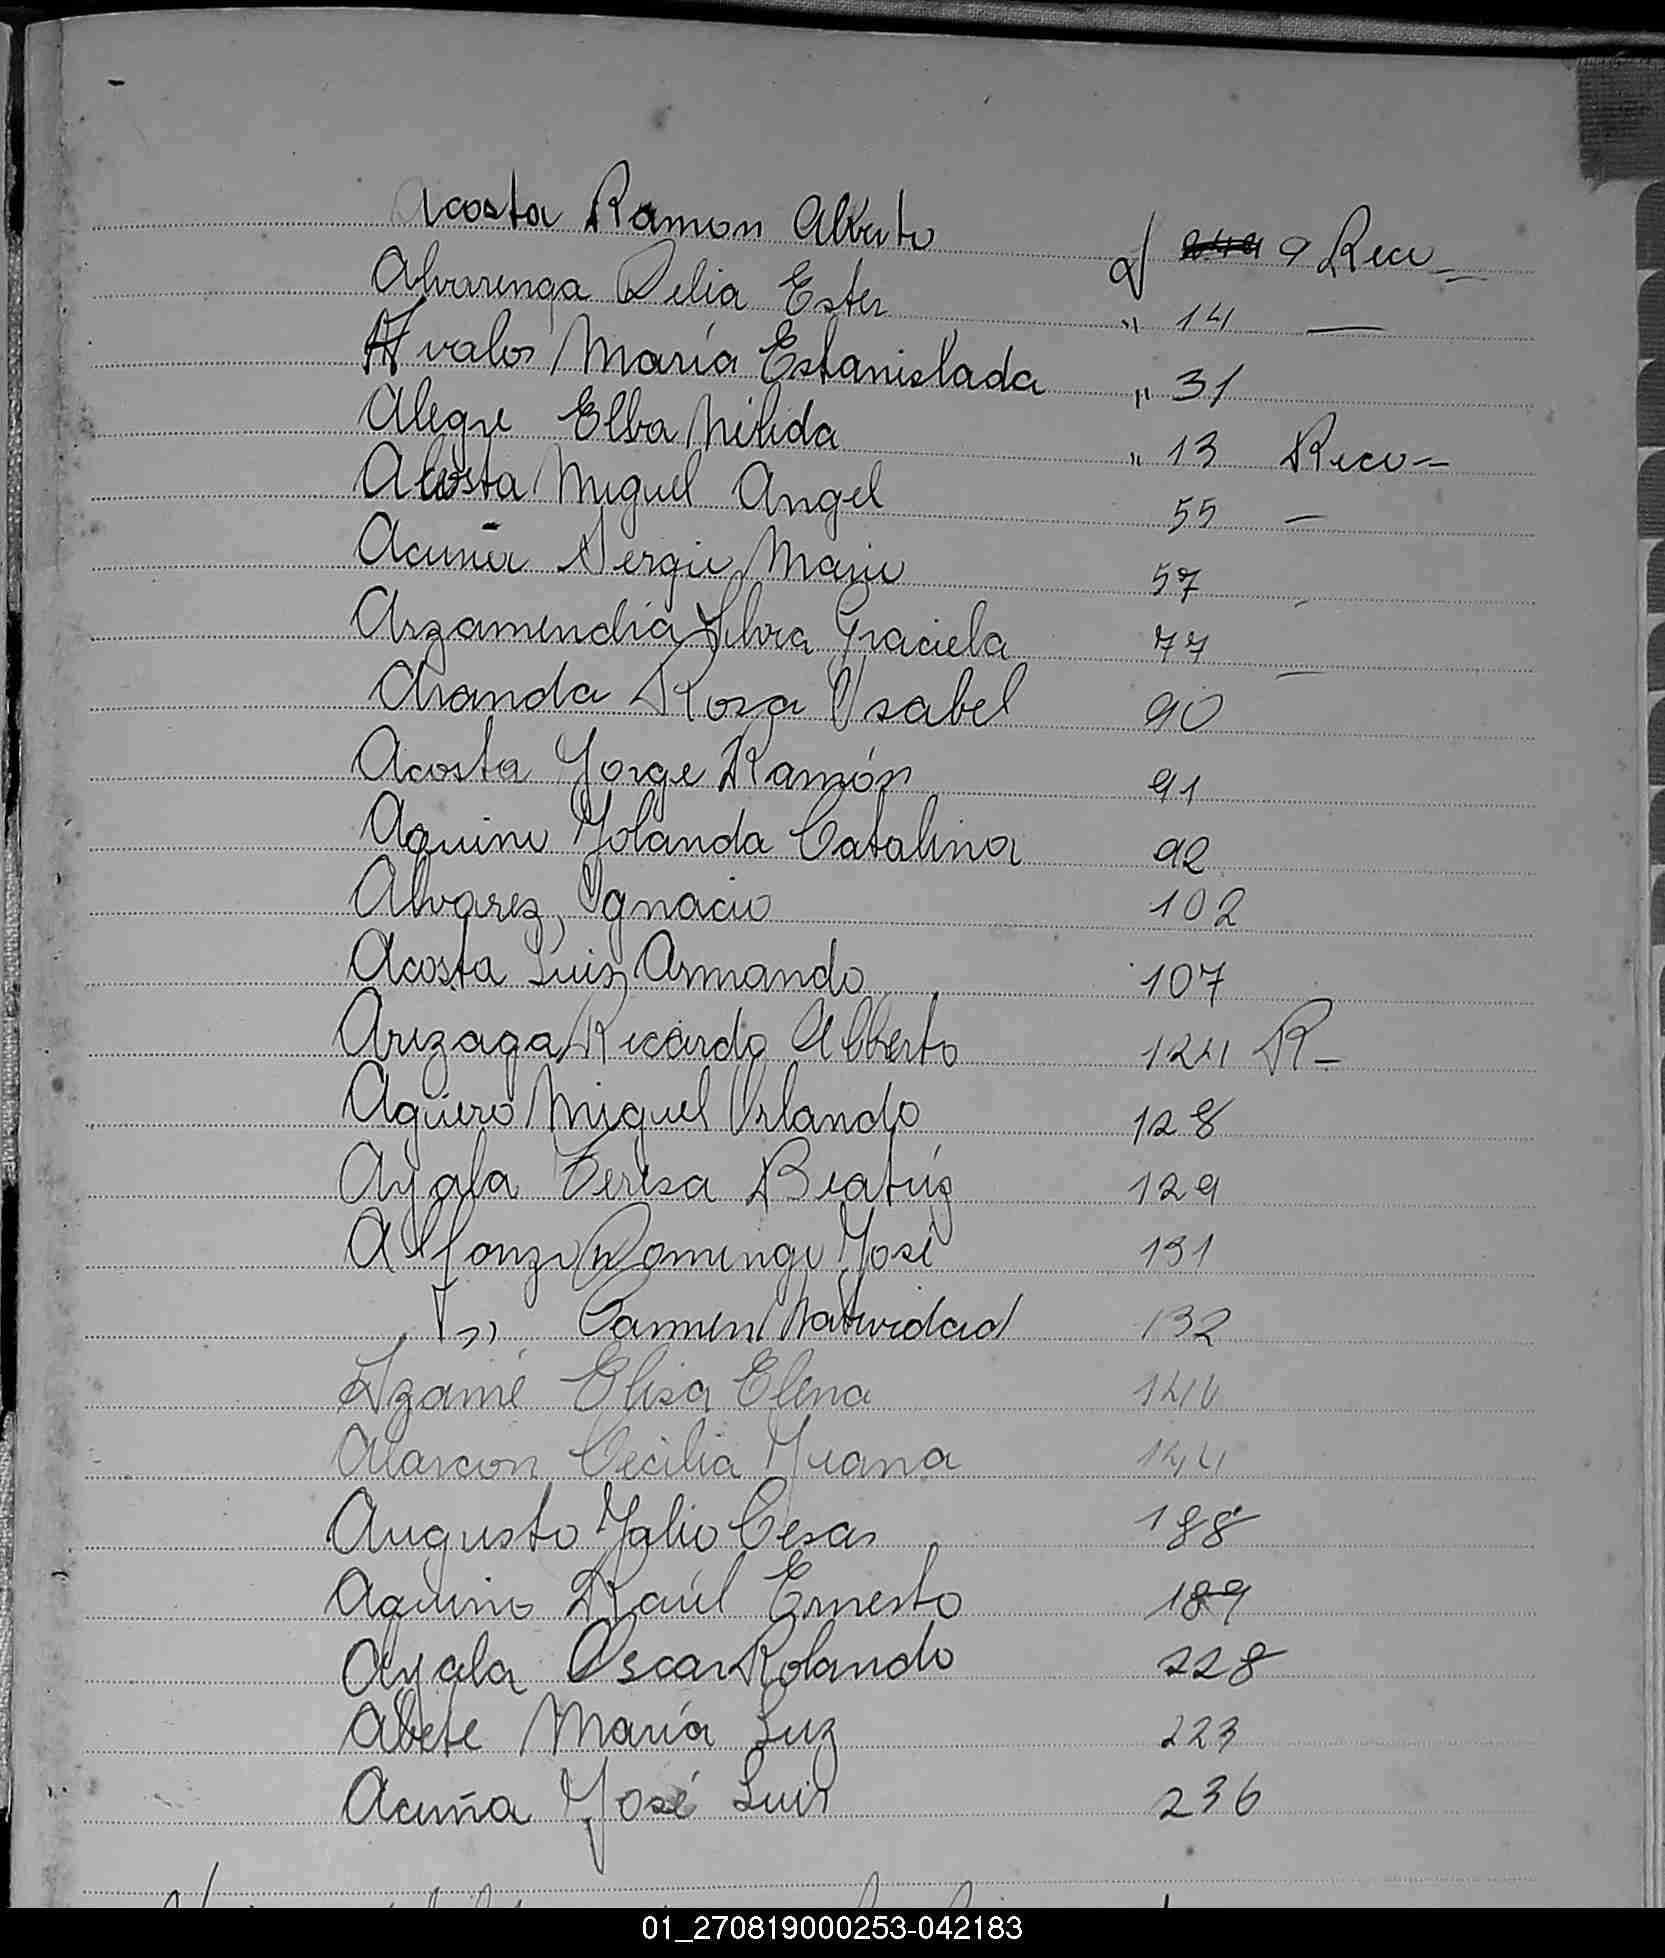 Acosta Ramon Alberto 9 Reco
Alvarenga Delia Ester " 14 —
Avalos María Estanislada " 31
Alegre Elba Nélida " 13 Reco—
Acosta Miguel Angel 55 —
Acuña Sergio Mario 57 -
Arzamendia Silvia Graciela 77 —
Aranda Rosa Ysabel 90
Acosta Jorge Ramón 91
Aquino Yolanda Catalina 92
Alvarez, Ygnacio 102
Acosta Luis Armando 107
Arizaga Ricardo Alberto 124 R-
Agüero Miguel Orlando 128
Ayala Teresa Beatríz 129
Alfonzo Domingo José 131
" Carmen Natividad 132
Azamé Elisa Elena 140
Alarcon Cecilia 144
Augusto Julio Cesar 188
Aquino Raúl Ernesto 189
Ayala Oscar Rolando 228
Abete María Luz 223
Acuña José Luis 236
01_270819000253-042183